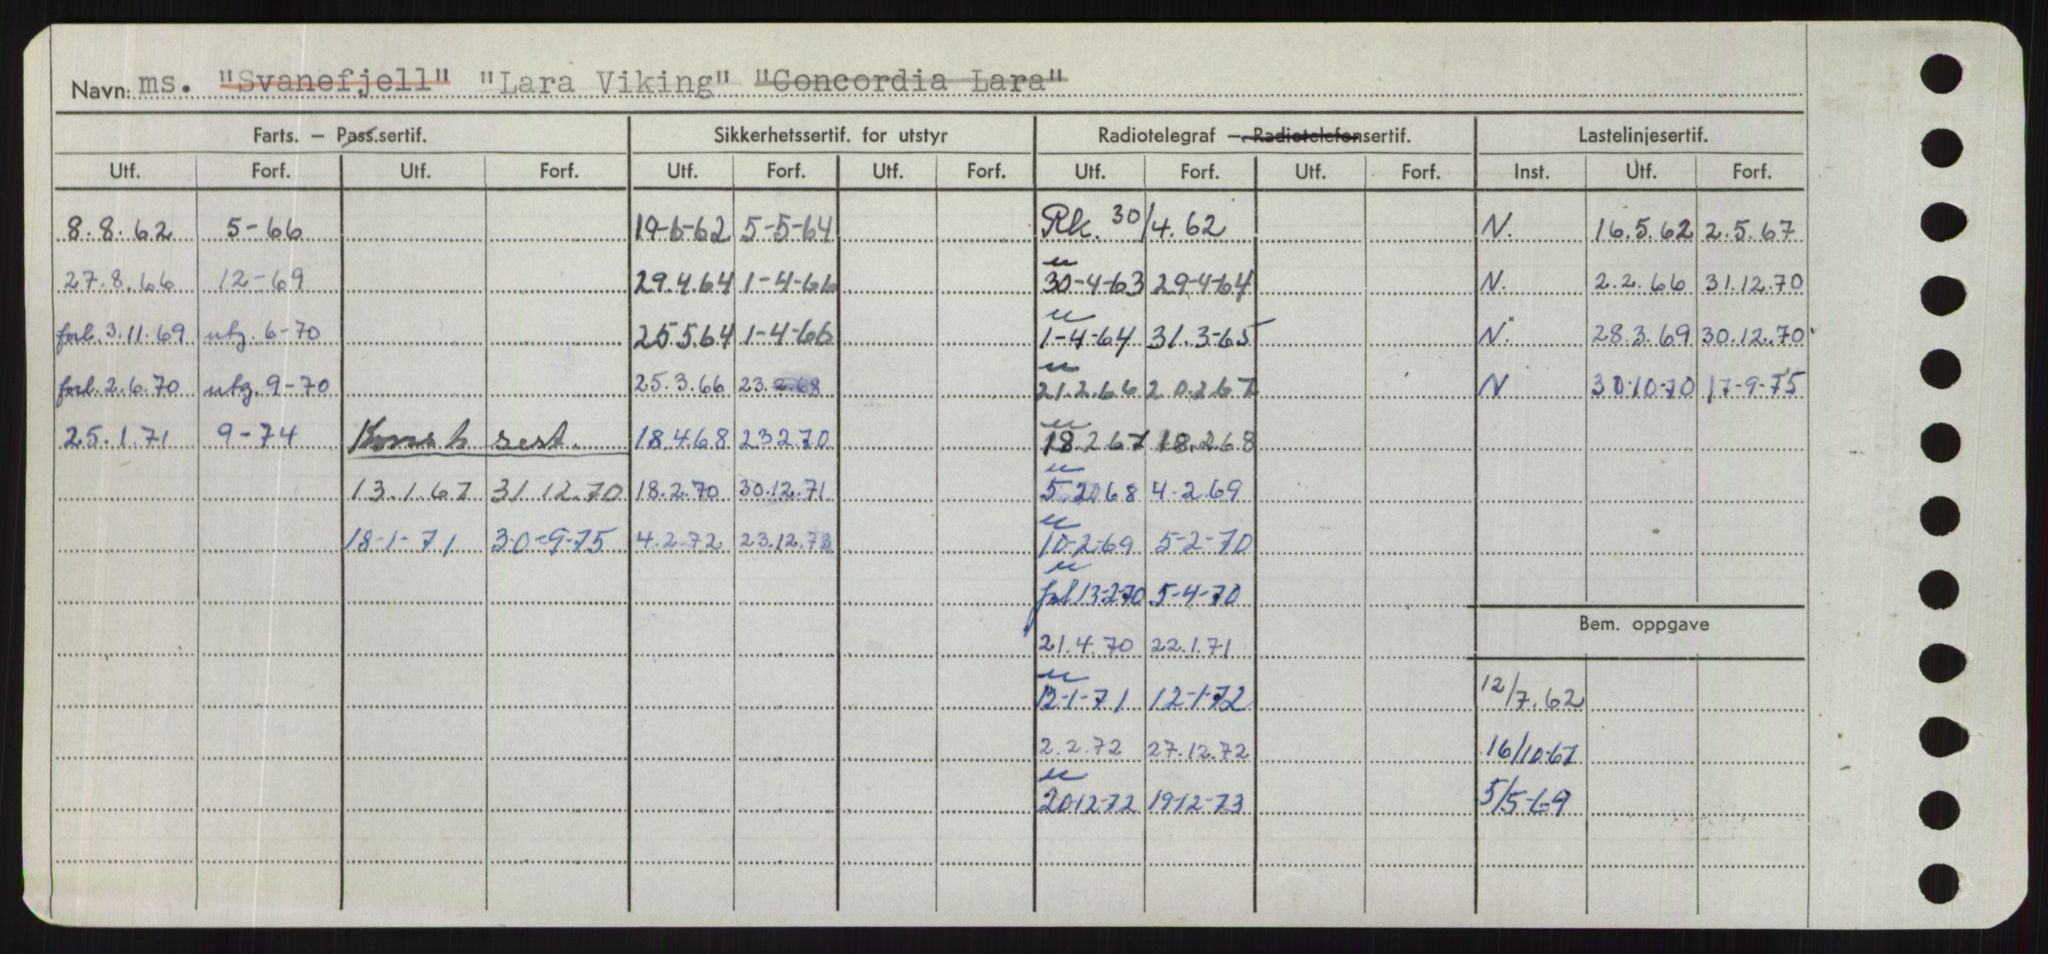 Navn: ms. "Svanefjell" "Lara Viking" "Concordia Lara"
Farts. – Pass.sertif. Sikkerhetssertif. for utstyr Radiotelegraf – Radiotelefonsertif. Lastelinjesertif.
Utf. Forf. Utf. Forf. Utf. Forf. Utf. Forf. Utf. Forf. Utf. Forf. Inst. Utf. Forf.
8.8.62 5-66 19-6-62 5-5-64 Rk. 30/4.62 N. 16.5.62 2.5.67
27.8.66 12-69 29.4.64 1-4-66 30-4-63 29-4-64 N. 2.2.66 31.12.70
forl. 3.11.69 utg. 6-70 25.5.64 1-4-66 1-4-64 31.3-65 N. 28.3.69 30.12.70
forl. 2.6.70 utg. 9-70 25.3.66 23.2.68 21.2.66 20.2.67 N 30.10-70 17-9-75
25.1.71 9-74 sert. 18.4.68 23.2.70 18.2.67 18.2.68
13.1.67 31.12.70 18.2.70 30.12.71 5.2.68 4-2.69
18-1-71 30-9-75 4.2.72 23.12.73 10-2-69 5-2-70
13-2-70 5-4-70
Bem. oppgave
21.4.70 22.1.71
12-1-71 12-1-72 12/7.62
2.2.72 27.12.72 16/10-67
20-12-72 19-12-73 5/5-69